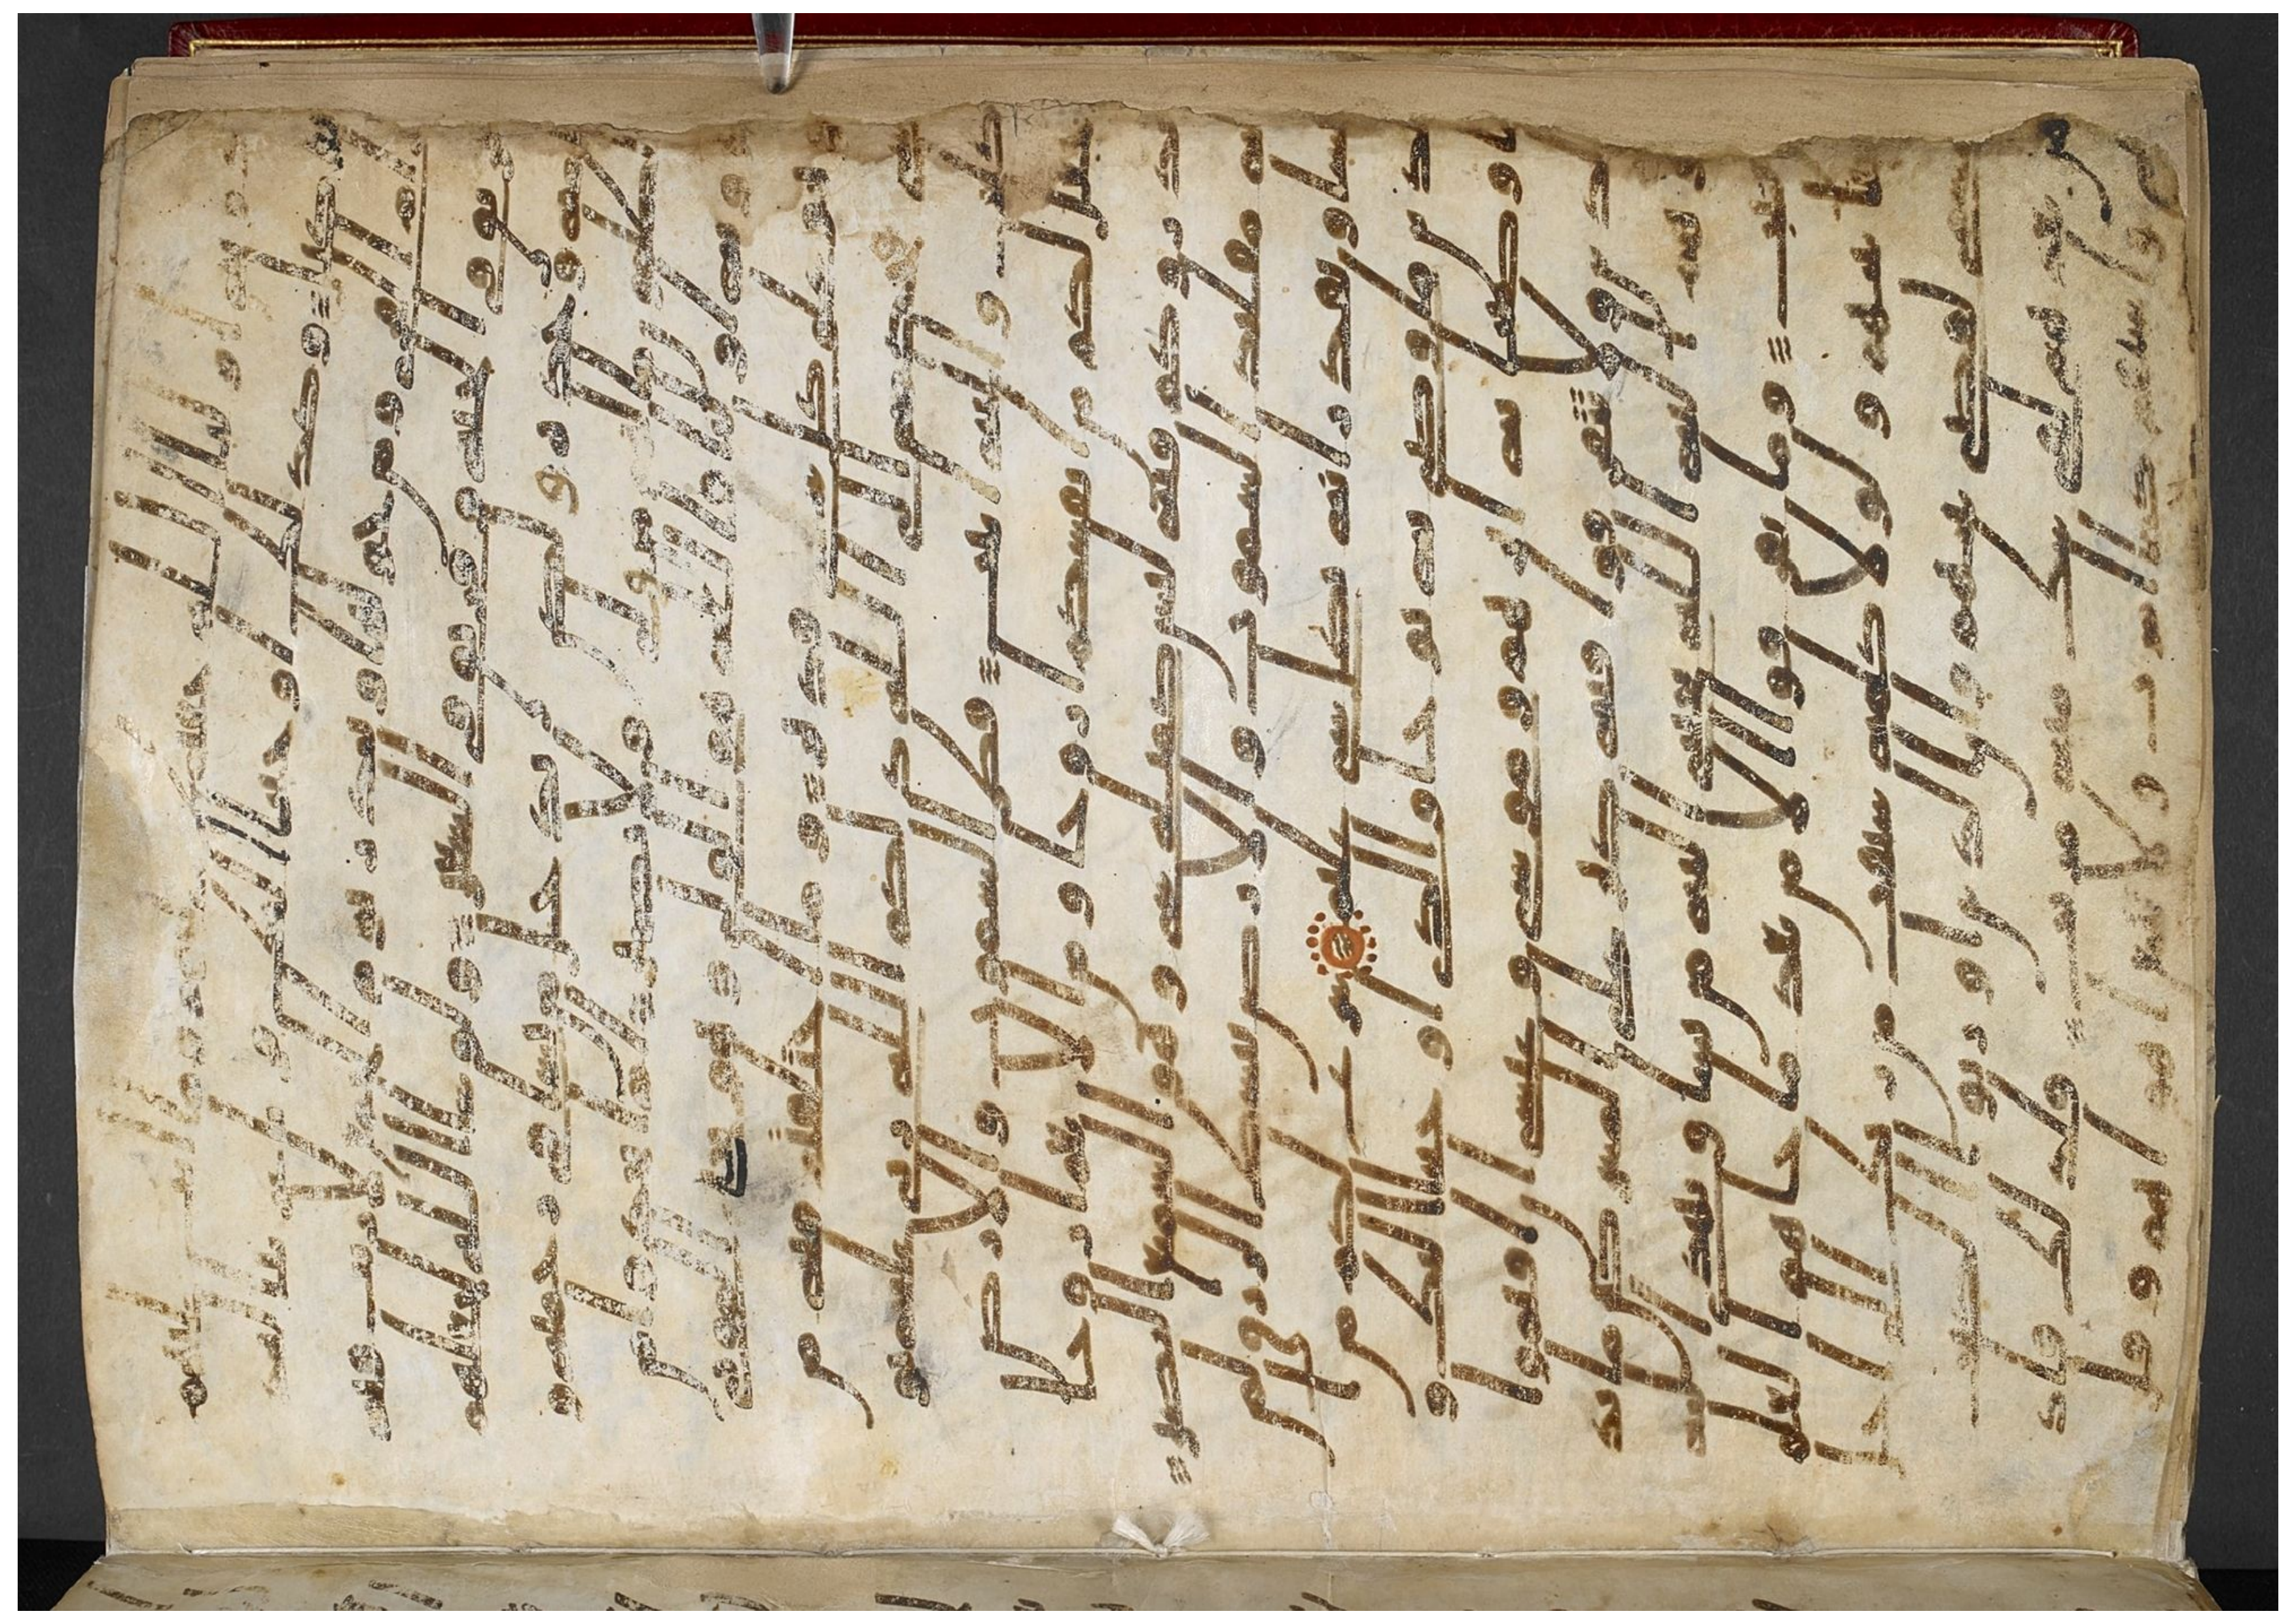 دونه اوليا الله حفيظ عليهم وما
انت عليهم بوكيل وكذلك اوحينا اليك قرانا عر
بيا لتنذر ام القرى ومن حولها وتنذر يوم الجمع لا ريب فيه
فريق في الجنة وفريق في السعير ولو شا الله لجعلهم
امة وحدة ولكن يدخل من يشا في رحمته و
الظلمون ما لهم من ولي ولا نصير ام اتخذوا من
دونه اوليا فالله هو الولي وهو يحي الموتى
وهو على كل شي قدير وما اختلفتم فيه من
شي فحكمه الى الله ذلكم الله ربي عليه تو
كلت واليه انيب فطر السموت والارض
جعل لكم من انفسكم ازوجا ومن الانعم ازوجا
يذروكم فيه ليس كمثله شي وهو السميع البصير
له مقليد السموت والارض يبسط الرزق لمن
يشا ويقدر انه بكل شي عليم شرع لكم من
الدين ما وصى به نوحا والذي اوحينا اليك و
ما وصينا به ابرهيم وموسى وعيسى ان اقيموا
الدين ولا تتفرقوا فيه كبر على المشركين ما تد
عوهم اليه الله يجتبي اليه من يشا ويهدي اليه
من ينيب وما تفرقوا الا من بعد ما جاهم العلم
بغيا بينهم ولولا كلمة سبقت من ربك الى اجل
مسمى لقضي بينهم وان الذين اورثوا الكتب
من بعدهم لفي شك منه مريب فلذلك فاد
ع واستقم كما امرت ولا تتبع اهواهم وقل